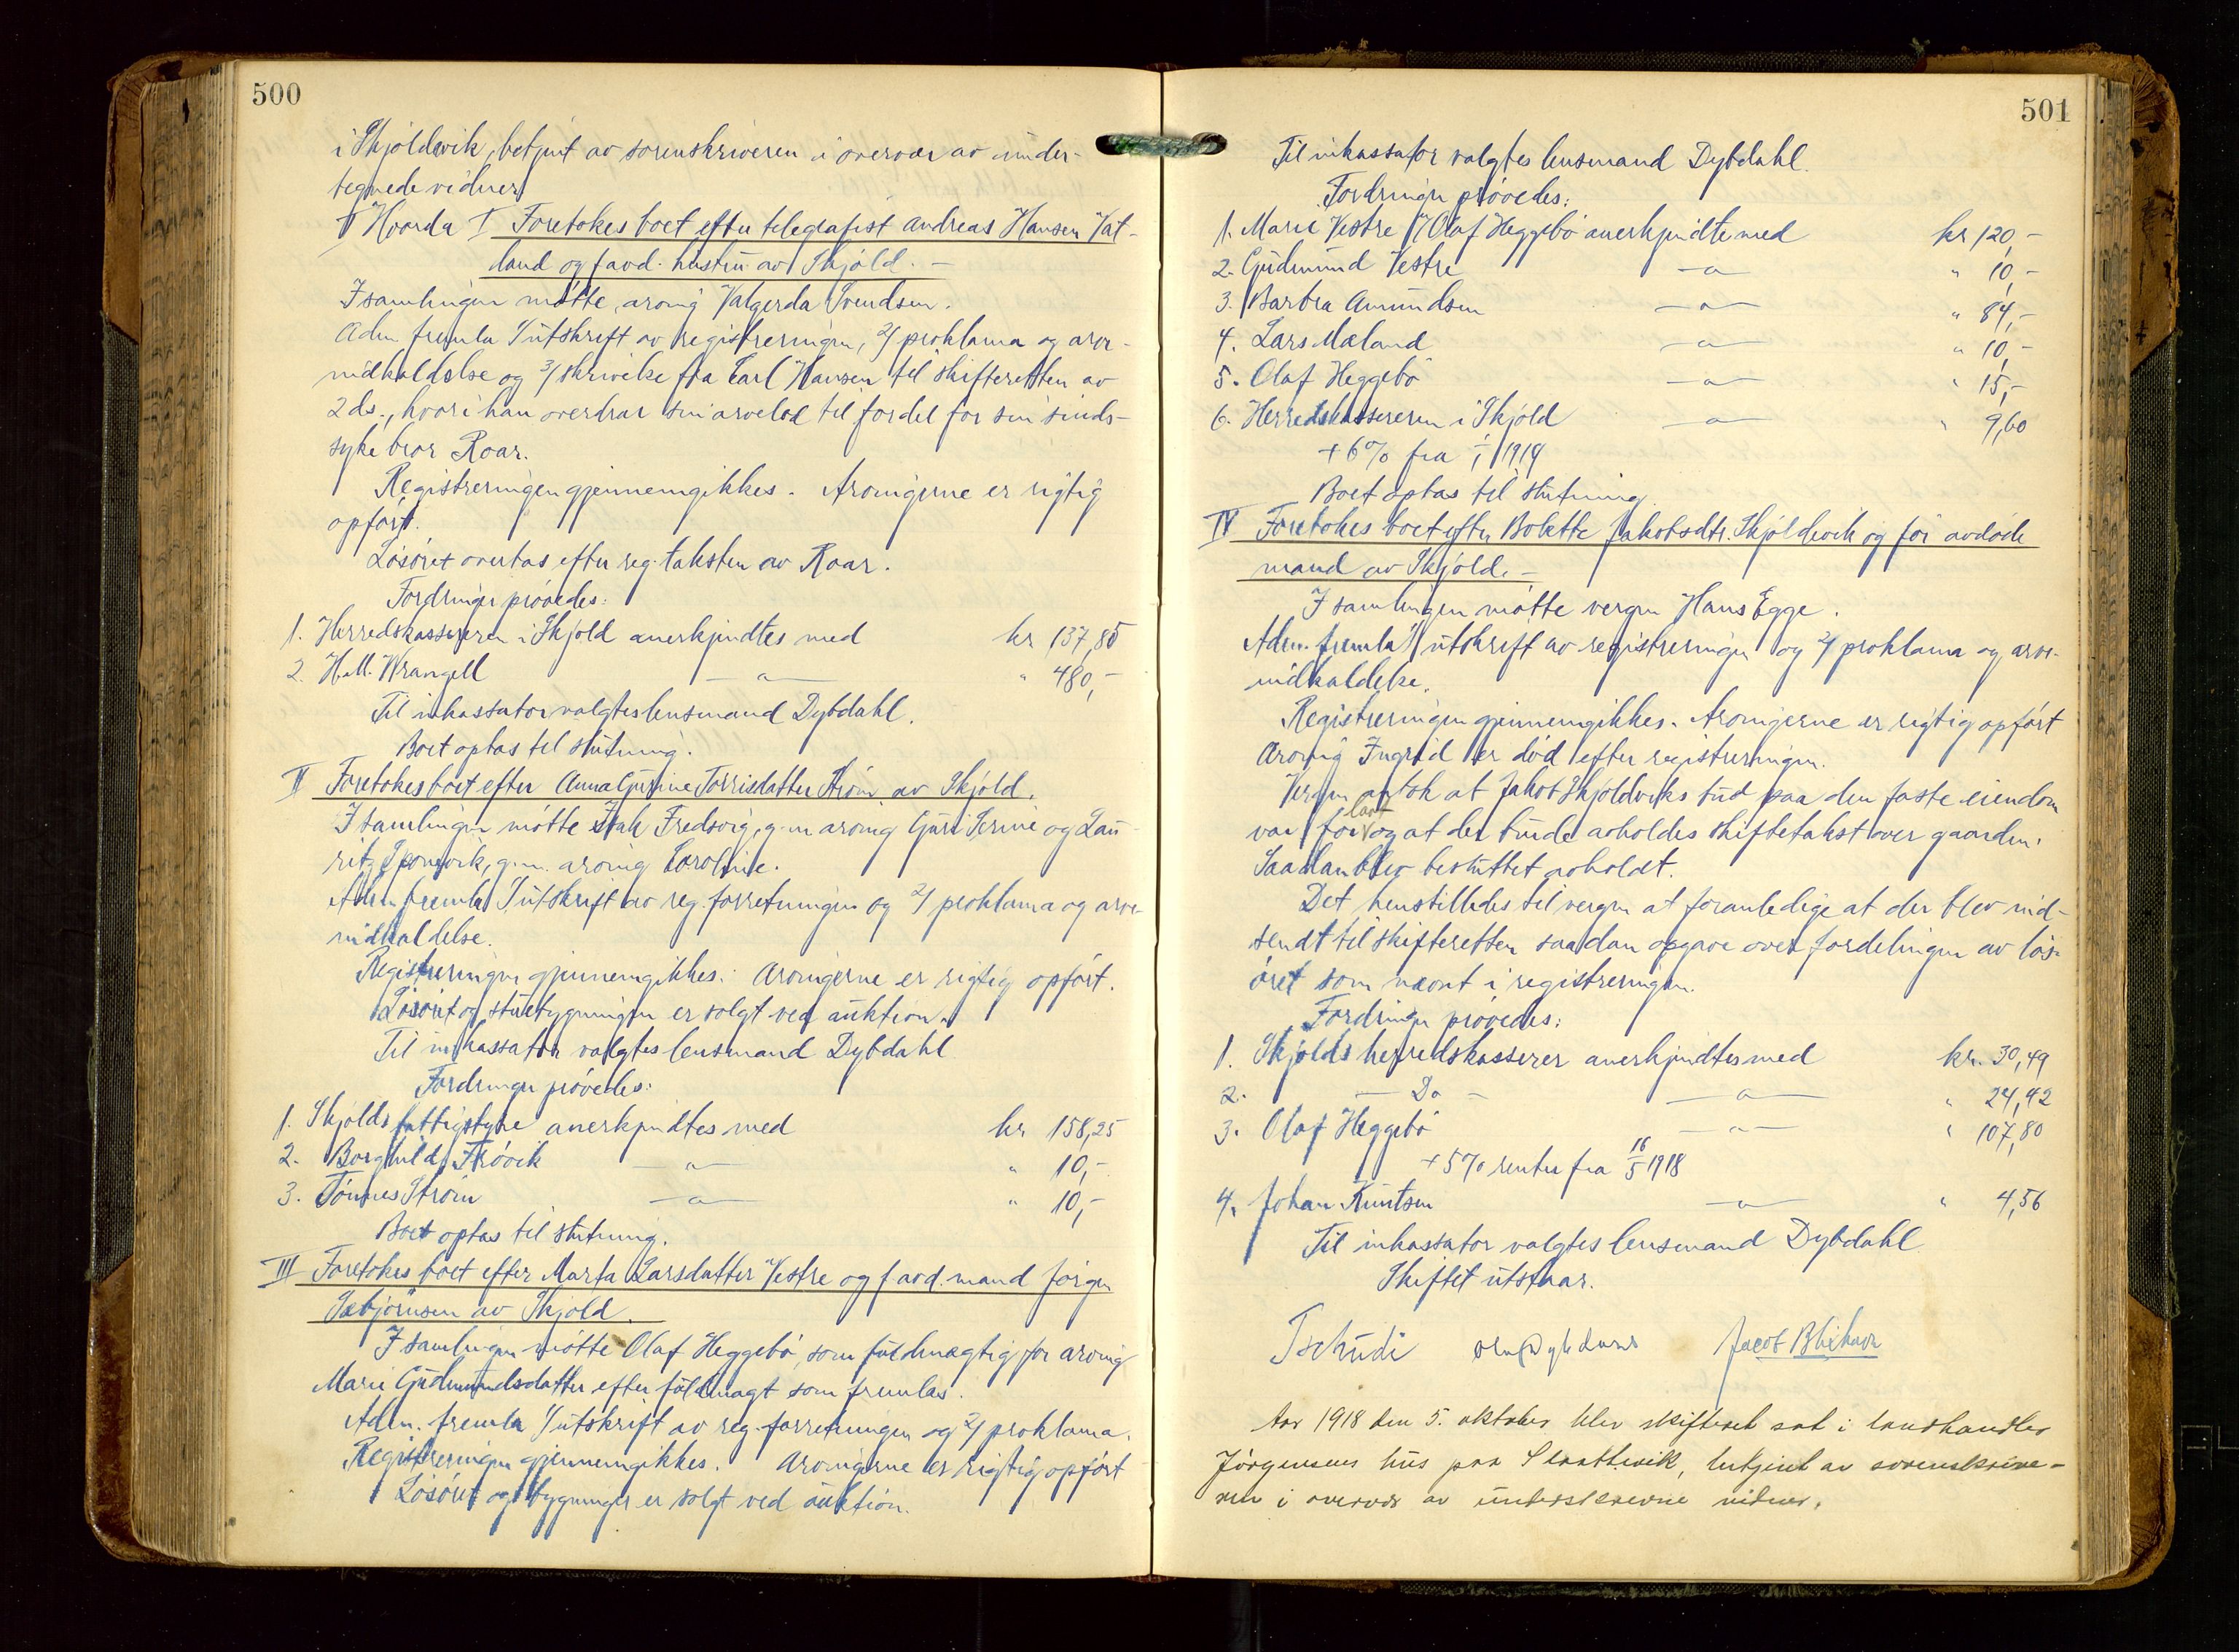 500
i Skjoldavik, betjent av sorenskriveren i overvær av under-
tegnede vidner
Hvorda I Foretokes boet efter telegrafist Andreas Hansen Vat-
land og f. avd. hustru av Skjold. -
I samlingen møtte arving Valgerda Svendsen.
Adm fremla 1/ utskrift av registreringen, 2/ proklama og arve-
indkaldelse og 3/ skrivelse fra Carl Hansen til skifteretten av
2 ds., hvori han overdrar sin arvelod til fordel for sin sinds-
syke bror Roar.
Registreringen gjennemgikkes. Arvingerne er rigtig
opført.
Løsøret overtas efter reg. taksten av Roar.
Fordringer prøvedes:
1. Herredskassereren i Skjold anerkjendtes med kr 137,85
2. H.M. Wrangell —"— " 480,-
Til inkassator valgtes lensmand Dybdahl.
Boet optas til slutning.
II Foretokes boet efter Anna Gurine Torrisdatter Strøm av Skjold.
I samlingen møtte Isak Fredsvig, g.m. arving Guri Serine og Lau-
ritz Sponevik, g.m. arving Caroline.
Adm fremla 1/ utskrift av reg. forretningen og 2/ proklama og arve-
indkaldelse.
Registreringen gjennemgikkes. Arvingerne er rigtig opført.
Løsøret og stuebygningen er solgt ved auktion.
Til inkassator valgtes lensmand Dybdahl
Fordringer prøvedes:
1. Skjolds fattigstyre anerkjendtes med kr 158,25
2. Borghild Frøvik —"— " 10,-
3. Tønnes Strøm —"— " 10,-
Boet optas til slutning.
III Foretokes boet efter Marta Larsdatter Vestre og f. avd. mand Jørgen
Sæbjørnsen av Skjold.
I samlingen møtte Olaf Heggebø, som fuldmægtig for arving
Marie Gudmundsdatter efter fuldmagt som fremlas.
Adm. fremla 1/ utskrift av reg. forretningen og 2/ proklama.
Registreringen gjennemgikkes. Arvingerne er rigtig opført
Løsøret og bygninger er solgt ved auktion.
501
Til inkassator valgtes lensmand Dybdahl.
Fordringer prøvedes:
1. Marie Vestre v/ Olaf Heggebø anerkjendte med kr 120,-
2. Gudmund Vestre —"— " 10,-
3. Barbra Amundsen —"— " 84,-
4. Lars Mæland —"— " 10,-
5. Olaf Heggebø —"— " 15,-
6. Herredskassereren i Skjold —"— " 9,60
+ 6% fra 1/1 1914
Boet optas til slutning.
IV Foretokes boet efter Bolette Jakobsdtr. Skjoldevik og før avdøde
mand av Skjold. -
I samlingen møtte vergen Hans Egge.
Adm. fremla 1/ utskrift av registreringen og 2/ proklama og arve-
indkaldelse.
Registreringen gjennemgikkes. Arvingerne er rigtig opført
Arving Ingrid er død efter registreringen.
Vergen antok at Jakob Skjoldeviks bud paa den faste eiendom
var for lavt og at der burde avholdes skiftetakst over gaarden.
Saadan blev besluttet avholdt.
Det henstilledes til vergen at foranledige at der blev ind-
sendt til skifteretten saadan opgave over fordelingen av løs-
øret som nævnt i registreringen.
Fordringer prøvedes:
1. Skjolds herredskasserer anerkjendtes med kr. 30,49
2. — Do — —"— " 24,42
3. Olaf Heggebø —"— " 107,80
+ 5% renter fra 16/5 1918
4. Johan Knutsen —"— " 4,56
Til inkassator valgtes lensmand Dybdahl
Skiftet utstaar.
Tschudi Jacob
Aar 1918 den 5. oktober blev skifteret sat i landhandler
Jørgensens hus paa Slaattevik, betjent av sorenskrive-
ren i overvær av underskrevne vidner.